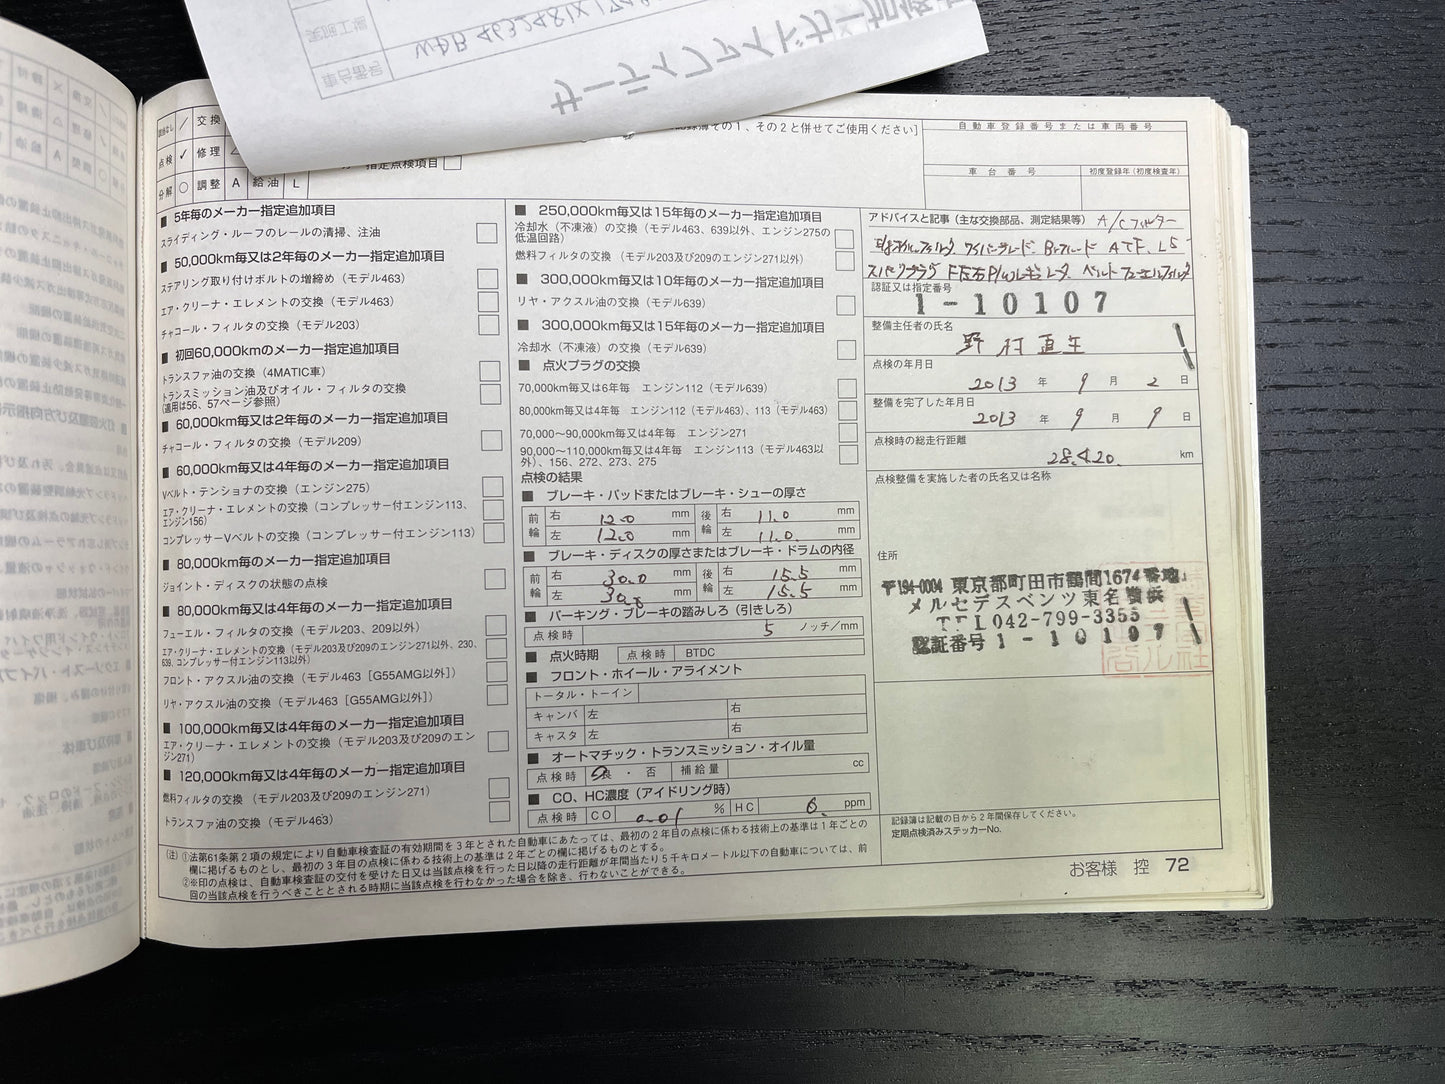 サーティファイドカー
車台番号
WDB 463248
点検 ✓ 修理
交換 /
分解 ○ 調整 A 給油 L
その1、その2と併せてご使用ください]
指定点検項目
自動車登録番号または車両番号
車台番号
初度登録年(初度検査年)
■ 5年毎のメーカー指定追加項目
スライディング・ルーフのレールの清掃、注油
■ 50,000km毎又は2年毎のメーカー指定追加項目
ステアリング取り付けボルトの増締め(モデル463)
エア・クリーナ・エレメントの交換(モデル463)
チャコール・フィルタの交換(モデル203)
■ 初回60,000kmのメーカー指定追加項目
トランスファ油の交換(4MATIC車)
トランスミッション油及びオイル・フィルタの交換
(適用は56、57ページ参照)
■ 60,000km毎又は2年毎のメーカー指定追加項目
チャコール・フィルタの交換(モデル209)
■ 60,000km毎又は4年毎のメーカー指定追加項目
Vベルト・テンショナの交換(エンジン275)
エア・クリーナ・エレメントの交換(コンプレッサー付エンジン113、
エンジン156)
コンプレッサーVベルトの交換(コンプレッサー付エンジン113)
■ 80,000km毎のメーカー指定追加項目
ジョイント・ディスクの状態の点検
■ 80,000km毎又は4年毎のメーカー指定追加項目
フューエル・フィルタの交換(モデル203、209以外)
エア・クリーナ・エレメントの交換(モデル203及び209のエンジン271以外、230、
639、コンプレッサー付エンジン113以外)
フロント・アクスル油の交換(モデル463[G55AMG以外])
リヤ・アクスル油の交換(モデル463[G55AMG以外])
■ 100,000km毎又は4年毎のメーカー指定追加項目
エア・クリーナ・エレメントの交換(モデル203及び209のエン
ジン271)
■ 120,000km毎又は4年毎のメーカー指定追加項目
燃料フィルタの交換(モデル203及び209のエンジン271)
トランスファ油の交換(モデル463)
■ 250,000km毎又は15年毎のメーカー指定追加項目
冷却水(不凍液)の交換(モデル463、639以外、エンジン275の
低温回路)
燃料フィルタの交換(モデル203及び209のエンジン271以外)
■ 300,000km毎又は10年毎のメーカー指定追加項目
リヤ・アクスル油の交換(モデル639)
■ 300,000km毎又は15年毎のメーカー指定追加項目
冷却水(不凍液)の交換(モデル639)
■ 点火プラグの交換
70,000km毎又は6年毎 エンジン112(モデル639)
80,000km毎又は4年毎 エンジン112(モデル463)、113(モデル463)
70,000～90,000km毎又は4年毎 エンジン271
90,000～110,000km毎又は4年毎 エンジン113(モデル463以
外)、156、272、273、275
点検の結果
■ ブレーキ・パッドまたはブレーキ・シューの厚さ
前輪 右 12.0 mm 後輪 右 11.0 mm
左 12.0 mm 左 11.0 mm
■ ブレーキ・ディスクの厚さまたはブレーキ・ドラムの内径
前輪 右 30.0 mm 後輪 右 15.5 mm
左 30.0 mm 左 15.5 mm
■ パーキング・ブレーキの踏みしろ(引きしろ)
点検時 5 ノッチ/mm
■ 点火時期 点検時 BTDC
■ フロント・ホイール・アライメント
トータル・トーイン
キャンバ 左 右
キャスタ 左 右
■ オートマチック・トランスミッション・オイル量
点検時 良・否 補給量 cc
■ CO、HC濃度(アイドリング時)
点検時 CO 0.01 % HC 0. ppm
アドバイスと記事(主な交換部品、測定結果等) A/Cフィルター
ワイパーブレード. Bフルード ATF. LS
スパークプラグ F左右P/Wレギュレータ ベルト フューエルフィルタ
認証又は指定番号
1-10107
整備主任者の氏名
野村直生
点検の年月日
2013 年 9 月 2 日
整備を完了した年月日
2013 年 9 月 9 日
点検時の総走行距離
28.420. km
点検整備を実施した者の氏名又は名称
住所
〒194-0004 東京都町田市鶴間1674番地1
メルセデスベンツ東名横浜
TEL042-799-3355
認証番号1-10107
記録簿は記載の日から2年間保存してください。
定期点検済みステッカーNo.
(注) ①法第61条第2項の規定により自動車検査証の有効期間を3年とされた自動車にあたっては、最初の2年目の点検に係わる技術上の基準は1年ごとの
欄に掲げるものとし、最初の3年目の点検に係わる技術上の基準は2年ごとの欄に掲げるものとする。
②※印の点検は、自動車検査証の交付を受けた日又は当該点検を行った日以降の走行距離が年間当たり5千キロメートル以下の自動車については、前
回の当該点検を行うべきこととされる時期に当該点検を行わなかった場合を除き、行わないことができる。
お客様 控 72